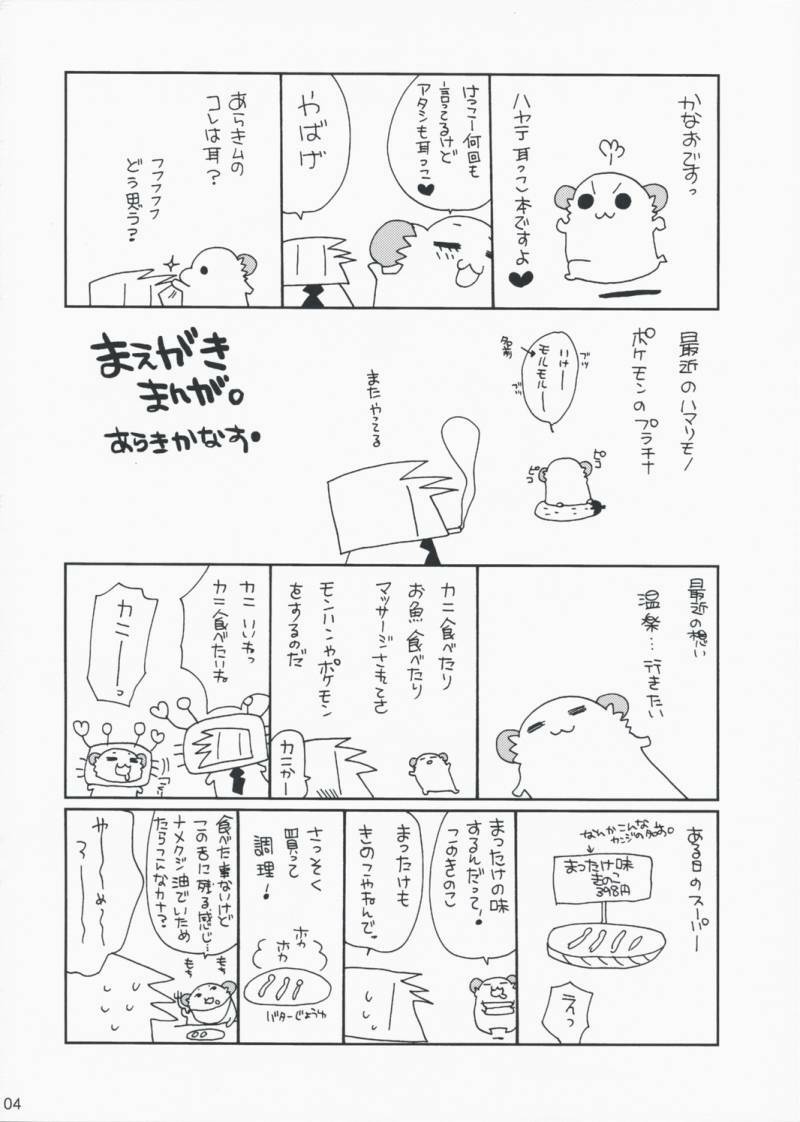 かなおですっ
ハヤテ耳っこ本ですよ♥
けっこー何回も
言ってるけど
アタシも耳っこ♥
やばげ
あらきムの
コレは耳？
フフフフフ
どう思う？
最近のハマリモノ
ポケモンのプラチナ
ブツ
いけー
モルモルー
ブツ
名前
ピコ
ピコ
またやってる
まえがき
まんが。
あらきかなお・
最近の想い
温泉…行きたい
カニ食べたり
お魚食べたり
マッサージされてさ
モンハンやポケモン
をするのだ
カニかー
カニいいねっ
カニ食べたいね
カニーーっ
ある日のスーパー
なんかこんな
カンジの名前。
まったけ味
きのこ
398円
えっ
まったけの味
するんだって！
このきのこ
まったけも
きのこやねんで。
さっそく
買って
調理！
ホカ
ホカ
バターじょうゆ
食べた事ないけど
この舌に残る感じ…
ナメクジ油でいため
たらこんなカナ？
もぎ
もぎ
や〜め〜
ろ〜〜
04